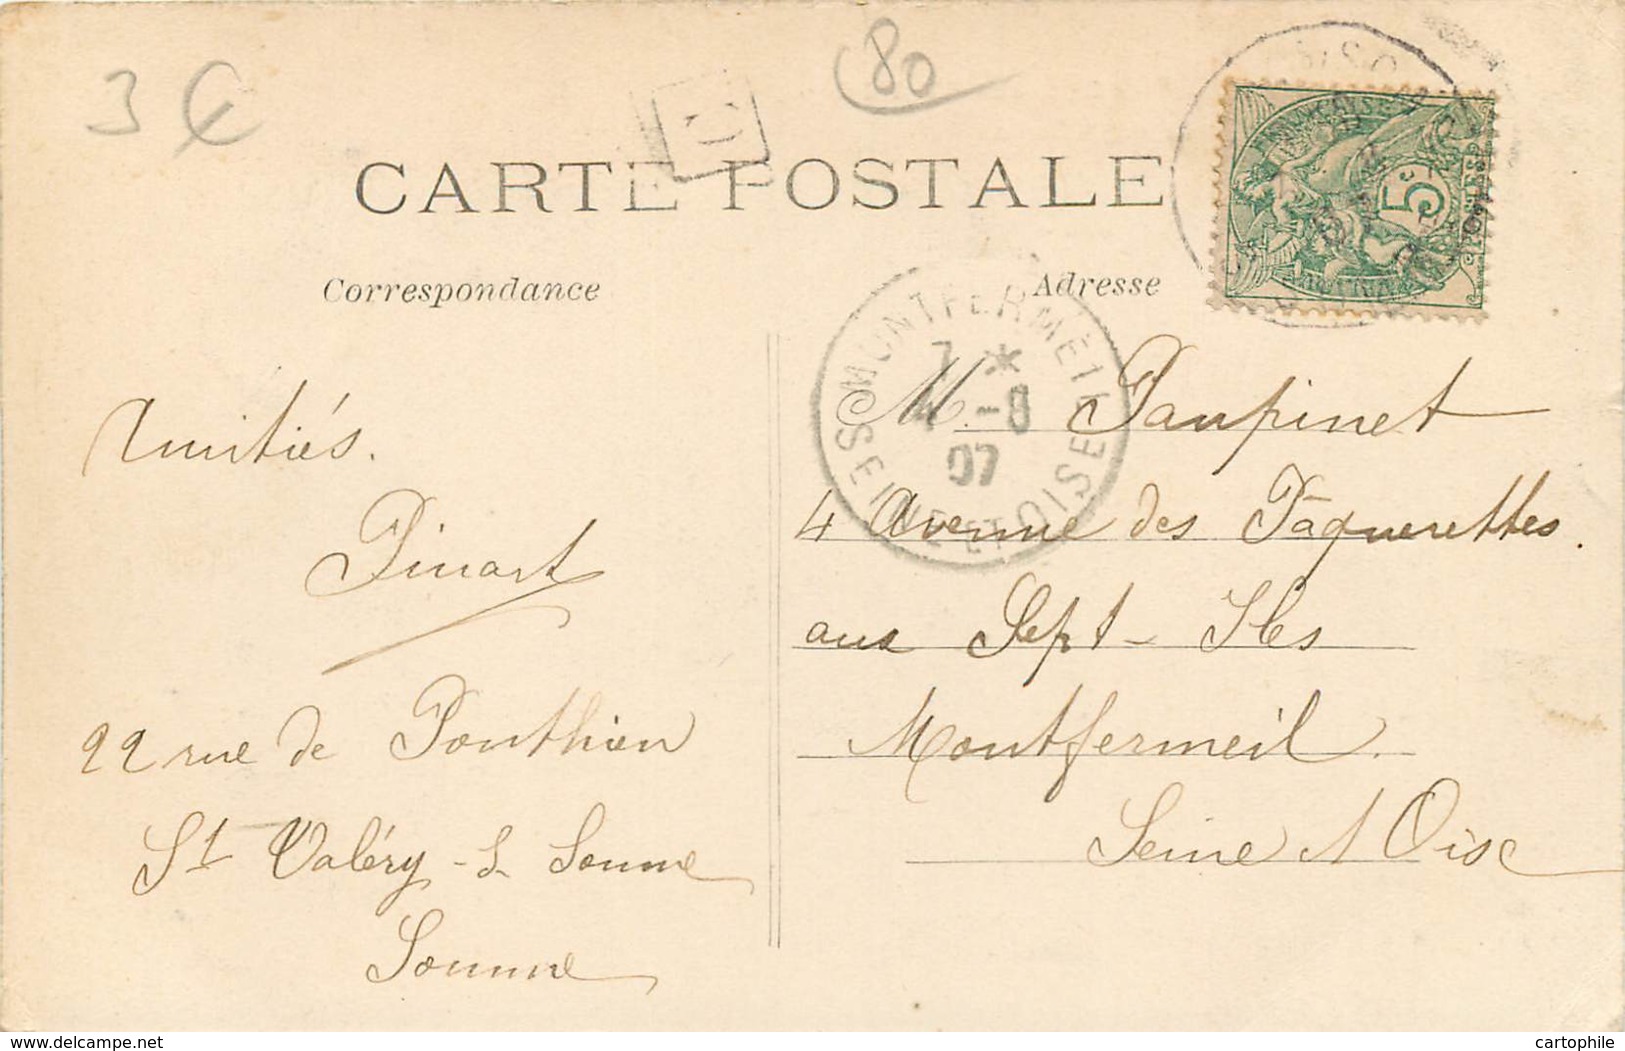 3 €
80
CARTE POSTALE
Correspondance
Adresse
5c
MONTFERMEIL
7 *
4 -8
07
SEINE ET OISE
Amitiés.
Pinart
22 rue de Ponthieu
St Valéry-s-Somme
Somme
M. Paupinet
4 Avenue des Pâquerettes.
aux Sept-Iles
Montfermeil.
Seine & Oise
www.delcampe.net
cartophile